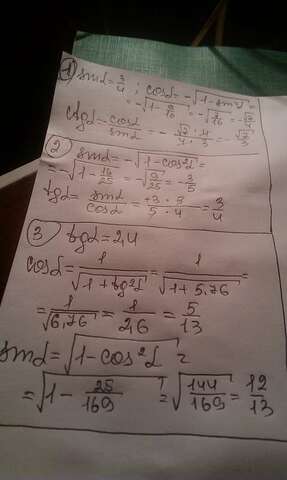 1) sinα = 3/4 ; cosα = -√(1-sin²α) =
= -√(1-9/16) = -√(7/16) = -√7/4
ctgα = cosα/sinα = -√7·4/4·3 = -√7/3
2) sinα = -√(1-cos²α) =
= -√(1-16/25) = -√(9/25) = -3/5
tgα = sinα/cosα = +3·5/5·4 = 3/4
3) tgα = 2,4
cosα = 1/√(1+tg²α) = 1/√(1+5,76) =
= 1/√(6,76) = 1/2,6 = 5/13
sinα = √(1-cos²α) =
= √(1-25/169) = √(144/169) = 12/13